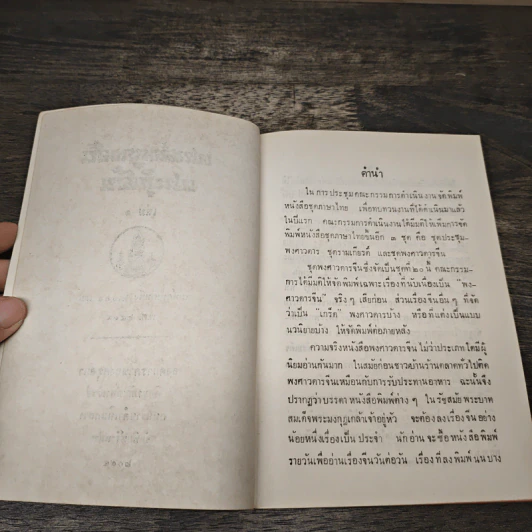 คำนำ
ในการประชุมคณะกรรมการดำเนินงานจัดพิมพ์
หนังสือชุดภาษาไทย เพื่อทบทวนงานที่ได้ดำเนินมาแล้ว
ในปีแรก คณะกรรมการดำเนินงานได้มีมติให้เพิ่มการจัด
พิมพ์หนังสือชุดภาษาไทยขึ้นอีก ๓ ชุด คือ ชุดประชุม-
พงศาวดาร ชุดรามเกียรติ์ และชุดพงศาวดารจีน
ชุดพงศาวดารจีนซึ่งจัดเป็นชุดที่ ๒๐ นี้ คณะกรรม-
การได้มีมติให้จัดพิมพ์เฉพาะเรื่องที่นับเนื่องเป็น "พง-
ศาวดารจีน" จริงๆ เสียก่อน ส่วนเรื่องจีนอื่นๆ ที่จัด
ว่าเป็น "เกร็ด" พงศาวดารบ้าง หรือที่แต่งเป็นแบบ
นวนิยายบ้าง ให้จัดพิมพ์ต่อภายหลัง
ความจริงหนังสือพงศาวดารจีน ไม่ว่าประเภทใดมีผู้
นิยมอ่านกันมาก ในสมัยก่อนชาวบ้านร้านตลาดทั่วไปติด
พงศาวดารจีนเหมือนกับการรับประทานอาหาร ฉะนั้นจึง
ปรากฏว่าบรรดาหนังสือพิมพ์ต่างๆ ในรัชสมัยพระบาท
สมเด็จพระมงกุฎเกล้าเจ้าอยู่หัว จะต้องลงเรื่องจีนอย่าง
น้อยหนึ่งเรื่องเป็นประจำ นักอ่านจะซื้อหนังสือพิมพ์
รายวันเพื่ออ่านเรื่องจีนวันต่อวัน เรื่องที่ลงพิมพ์นั้นบาง